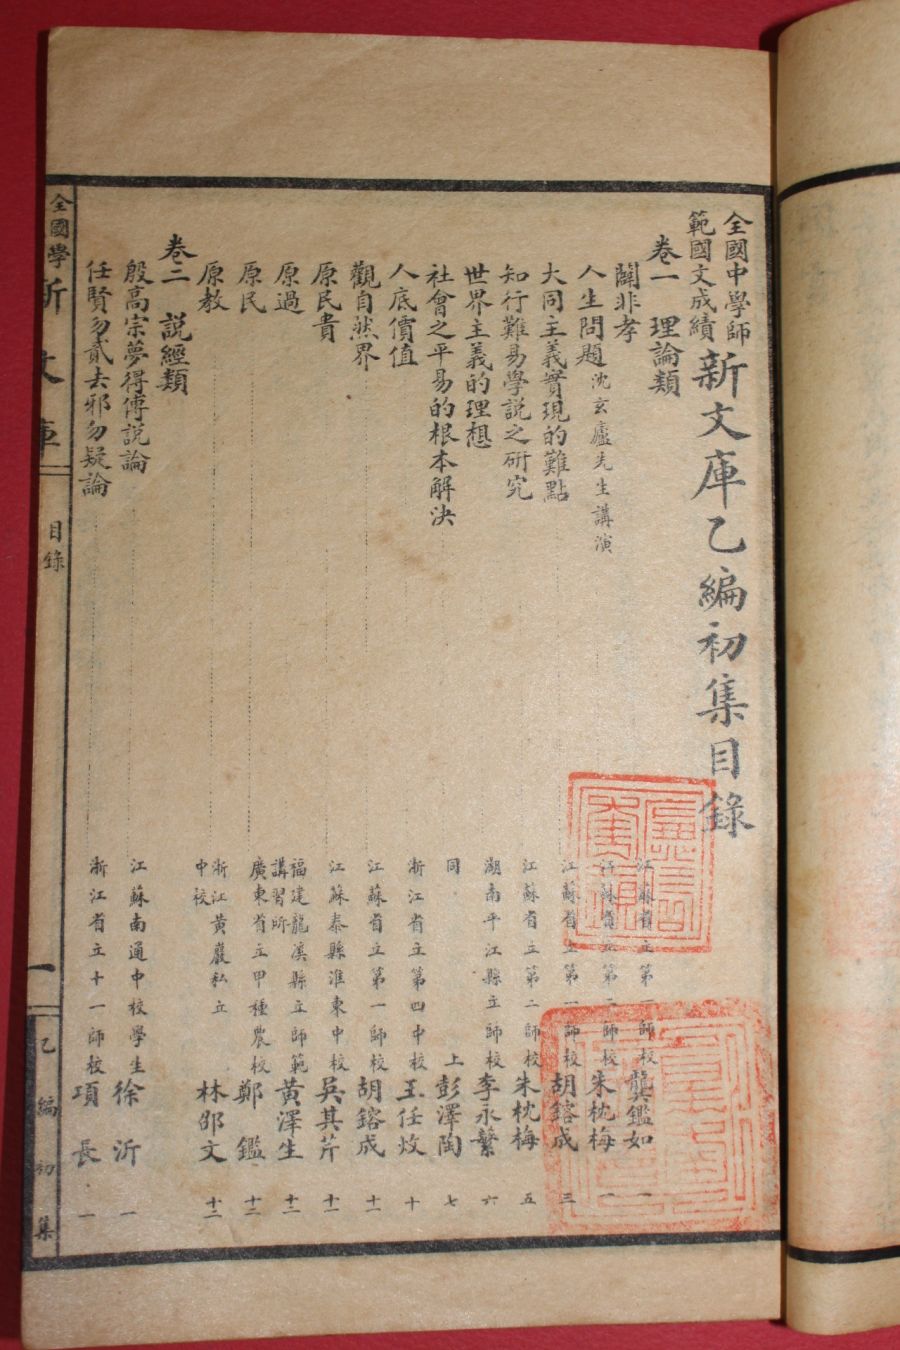 全國中學師範國文成績 新文庫乙編初集目錄
卷一 理論類
闢非孝 江蘇省立第一師校 龔鑑如 一
人生問題 沈玄廬先生講演 江蘇省立第二師校 朱枕梅 一
大同主義實現的難點 江蘇省立第一師校 胡鎔成 三
知行難易學說之研究 江蘇省立第二師校 朱枕梅 五
世界主義的理想 湖南平江縣立師校 李永繁 六
社會之平易的根本解決 同上 彭澤陶 七
人底價值 浙江省立第四中校 王任炆 十
觀自然界 江蘇省立第一師校 胡鎔成 十一
原民貴 江蘇泰縣淮東中校 吳其芹 十一
原過 福建龍溪縣立師範講習所 黃澤生 十二
原民 廣東省立甲種農校 鄭鑑 十二
原教 浙江黃巖私立中校 林邵文 十二
卷二 說經類
殷高宗夢得傅說論 江蘇南通中校學生 徐沂 一
任賢勿貳去邪勿疑論 浙江省立十一師校 項長 一
全國學 新文庫 目錄 一 乙編初集